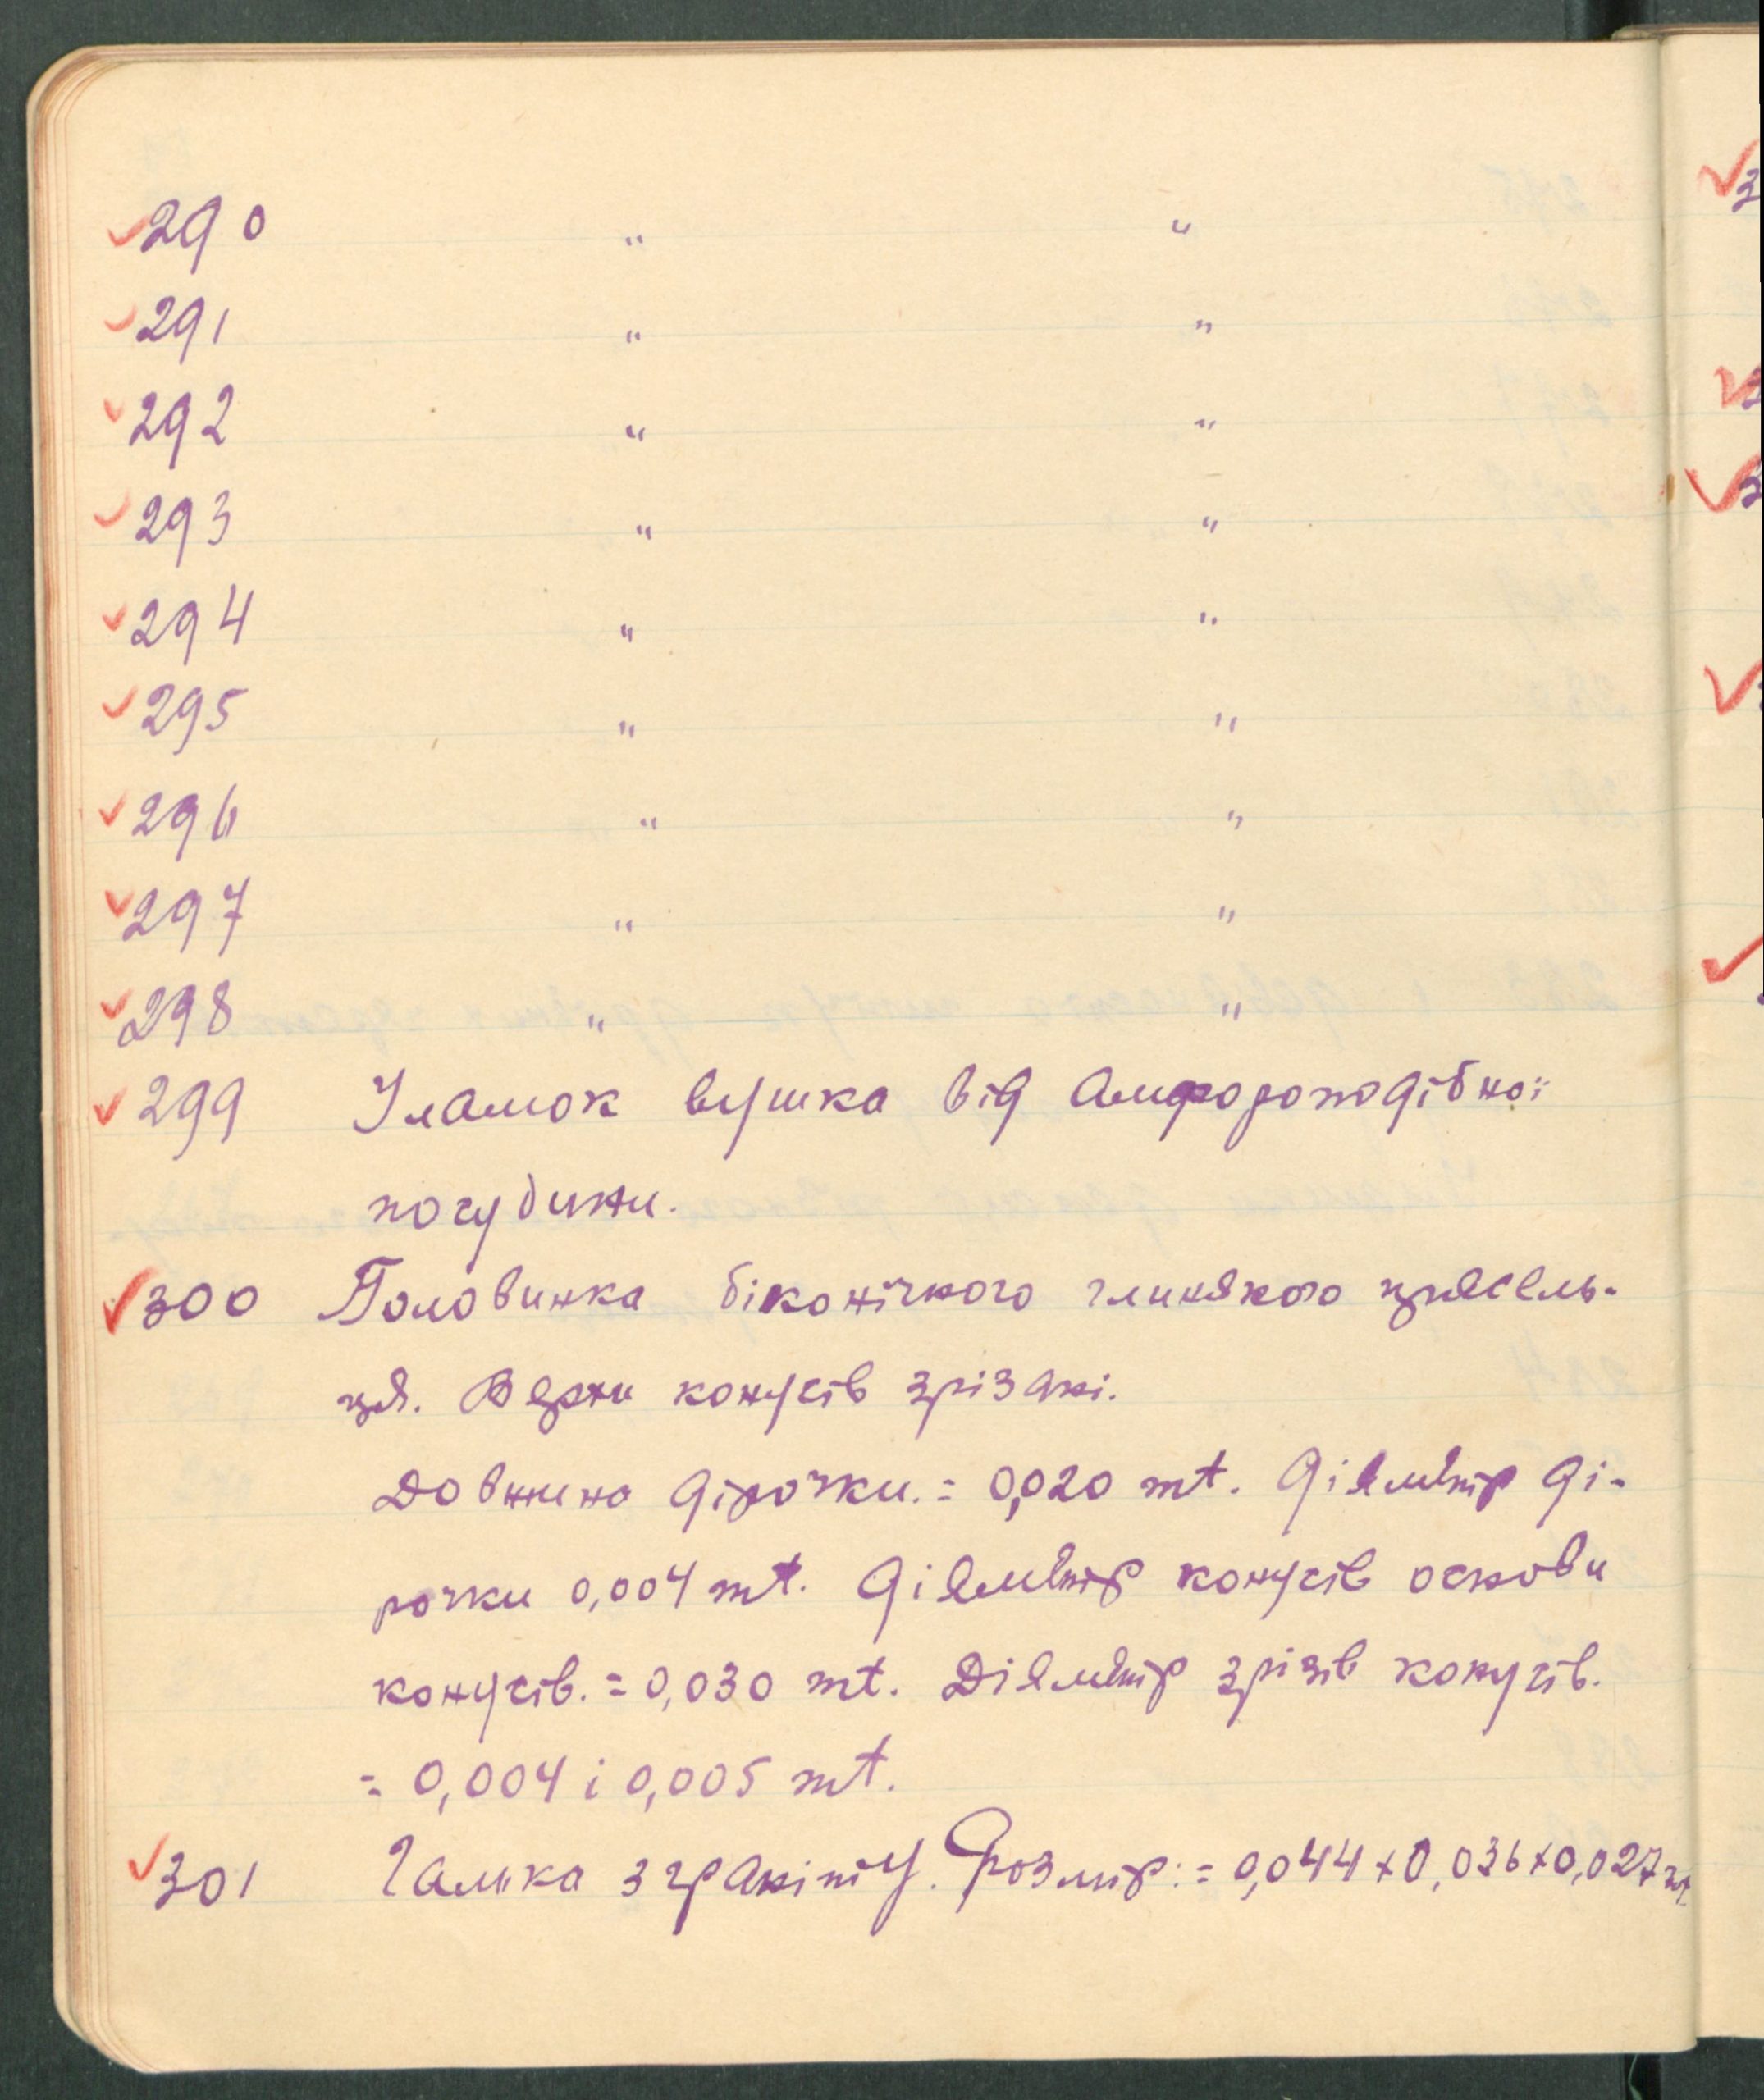 290 " "
291 " "
292 " "
293 " "
294 " "
295 " "
296 " "
297 " "
298 " "
299 Уламок вушка від амфороподібної
посудини.
300 Половинка біконічного глиняного прясель-
ця. Верхи конусів зрізані.
Довжина дірочки. = 0,020 mt. Діяметр ді-
рочки 0,004 mt. Діяметр конусів основи
конусів. = 0,030 mt. Діяметр зрізів конусів.
= 0,004 і 0,005 mt.
301 Галька з граніту. Розмір: = 0,044 × 0,036 × 0,027 mt